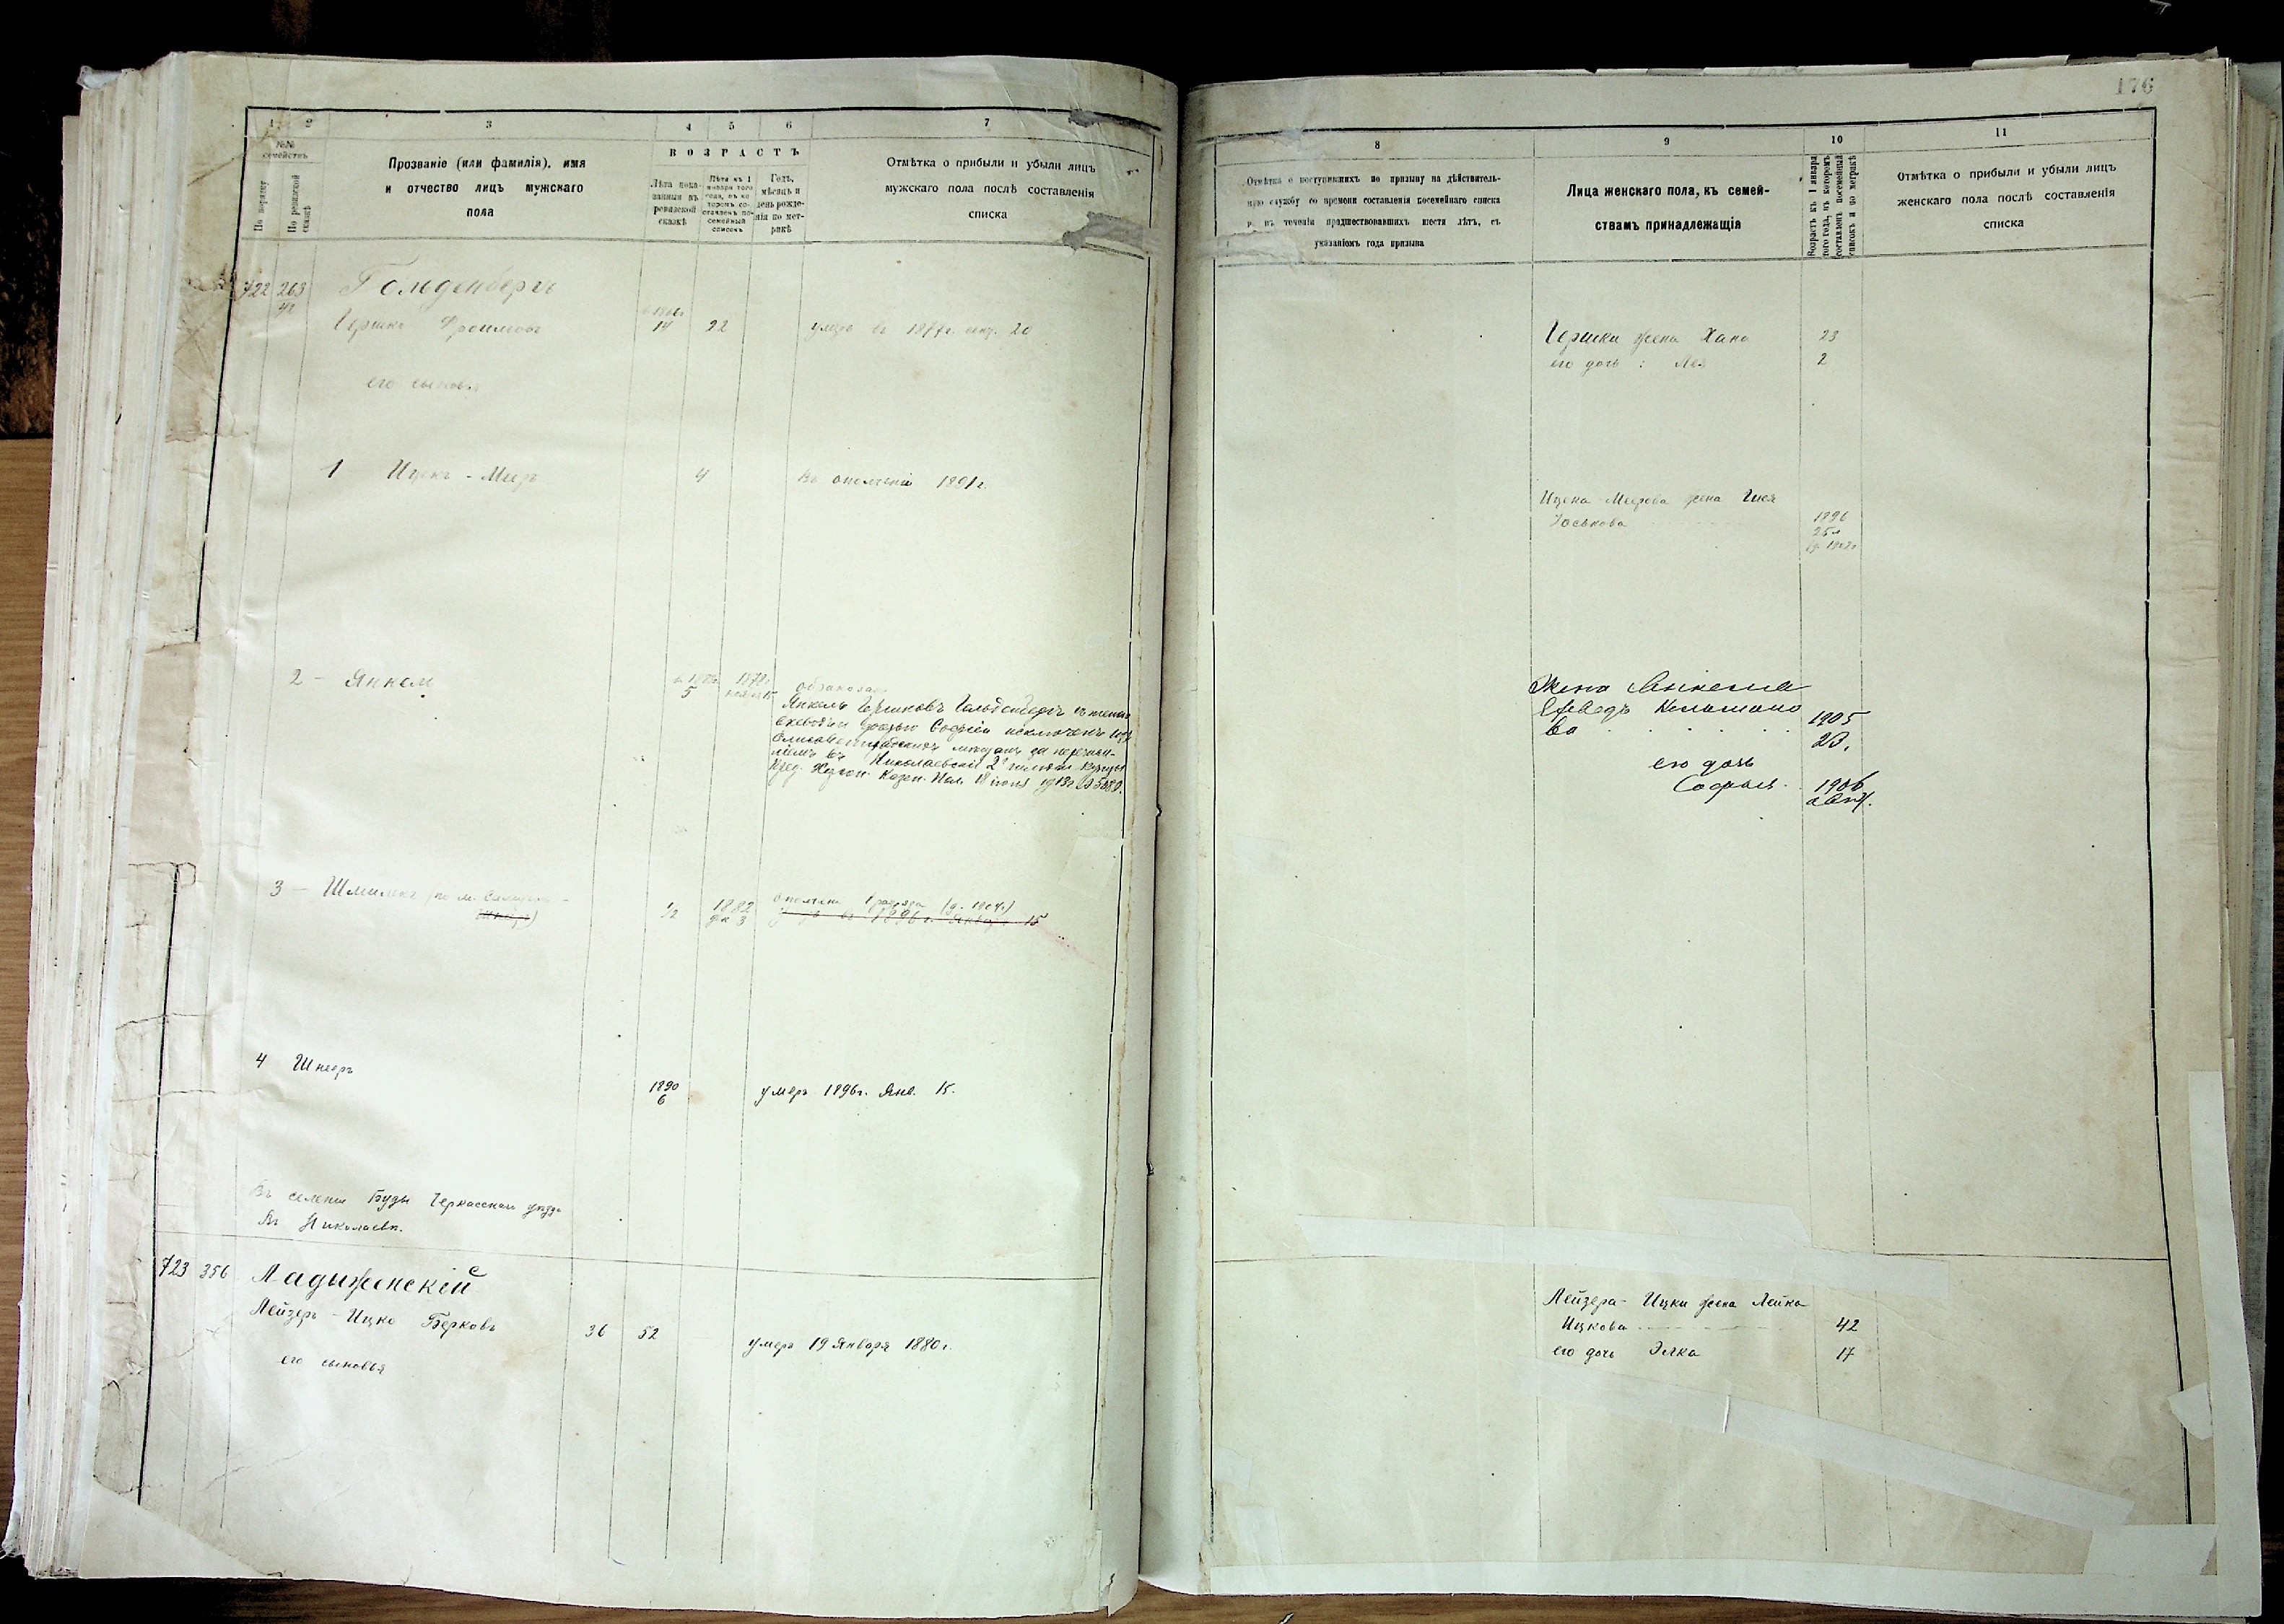 176
1
2
3
4
5
6
7
№№ семействъ
По порядку
По ревизской сказкѣ
Прозваніе (или фамилія), имя
и отчество лицъ мужскаго
пола
ВОЗРАСТЪ
Лѣта пока-
занныя въ
ревизской
сказкѣ
Лѣта къ 1
января того
года, въ ко-
торомъ со-
ставленъ по-
семейный
списокъ
Годъ,
мѣсяцъ и
день рожде-
нія по мет-
рикѣ
Отмѣтка о прибыли и убыли лицъ
мужскаго пола послѣ составленія
списка
722 263
Гольденбергъ
Гершко Фроимовъ
14 22
умеръ въ 1877г. 20
его сыновья
1 Ицекъ - Мееръ
4
Въ ополченіи 1891г.
2 - Янкель
5
1878г.
Янкель Гершковъ
Софіею исключенъ изъ
мѣщанъ за перечис-
леніемъ въ Николаевскіе 2й гильдіи купцы
Казен. Пал. 18 іюня 1913г.
3 - Шмилекъ
1/2
1882
дек 3
ополчен. 1 разряда
1896 г. Января 15
4 Шнееръ
1890
6
умеръ 1896г. Янв. 15.
Въ селеніи Буды Черкасскаго уѣзда
Въ Николаевѣ.
723 356
Ладыженскій
Лейзеръ - Ицко Берковъ
36 52
умеръ 19 Января 1880г.
его сыновья
8
9
10
11
Отмѣтка о поступившихъ по призыву на дѣйствитель-
ную службу со времени составленія посемейнаго списка
въ теченіи предшествовавшихъ шести лѣтъ, съ
указаніемъ года призыва
Лица женскаго пола, къ семей-
ствамъ принадлежащія
Возрастъ къ 1 января
того года, въ которомъ
составленъ посемейный
списокъ и по метрикѣ
Отмѣтка о прибыли и убыли лицъ
женскаго пола послѣ составленія
списка
Гершки жена Хана 23
его дочь : Лея 2
Ицека - Меерова жена
Юськова
1896
25л
Жена Янкеля
1905
23.
его дочь
Софья.
1906
Лейзера - Ицки жена Лейка
Ицкова 42
его дочь Элка 17